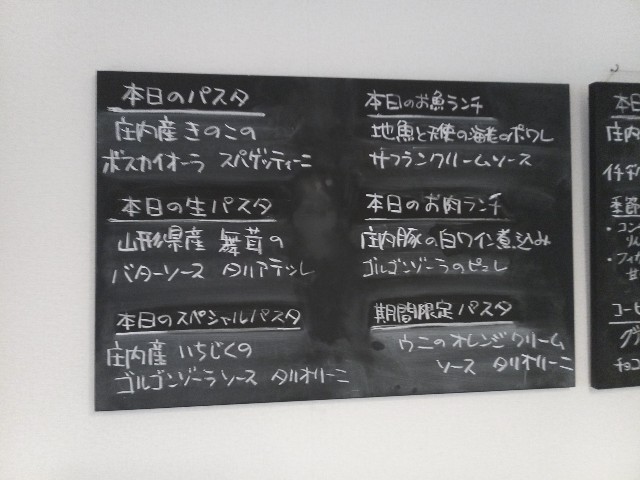 本日のパスタ
庄内産 きのこの
ボスカイオーラ スパゲッティーニ
本日の生パスタ
山形県産 舞茸の
バターソース タリアテッレ
本日のスペシャルパスタ
庄内産 いちじくの
ゴルゴンゾーラソース タリオリーニ
本日のお魚ランチ
地魚と天使の海老のポワレ
サフランクリームソース
本日のお肉ランチ
庄内豚の白ワイン煮込み
ゴルゴンゾーラのピュレ
期間限定 パスタ
ウニのオレンジクリーム
ソース タリオリーニ
本日
庄内
イチヂ
季節
・コン
・フィナ
コーヒ
グラ
チョコ